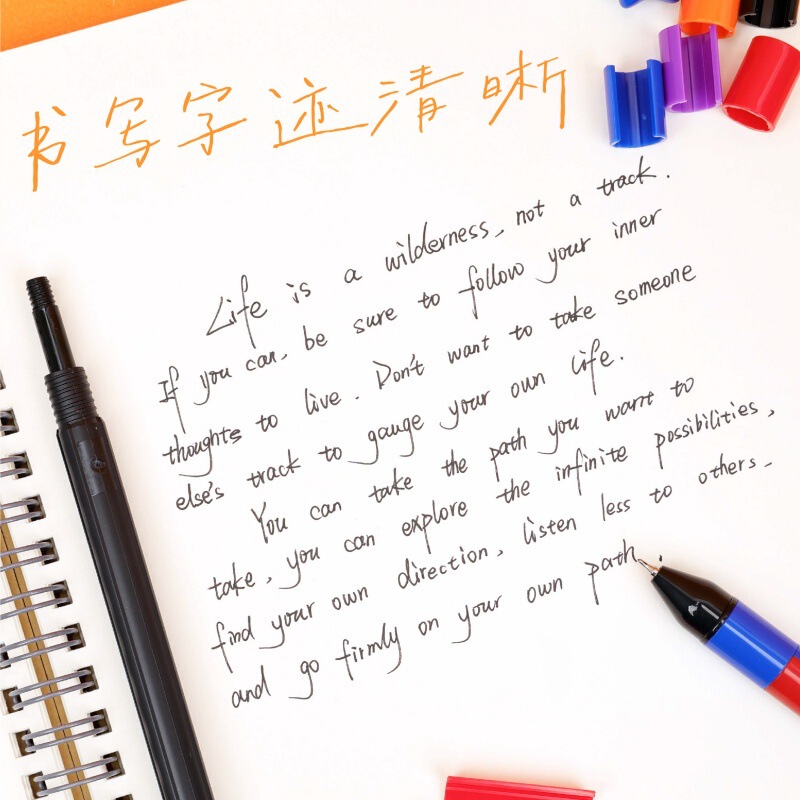 书写字迹清晰
Life is a wilderness, not a track.
If you can, be sure to follow your inner
thoughts to live. Don't want to take someone
else's track to gauge your own life.
You can take the path you want to
take, you can explore the infinite possibilities,
find your own direction, listen less to others.
and go firmly on your own path.